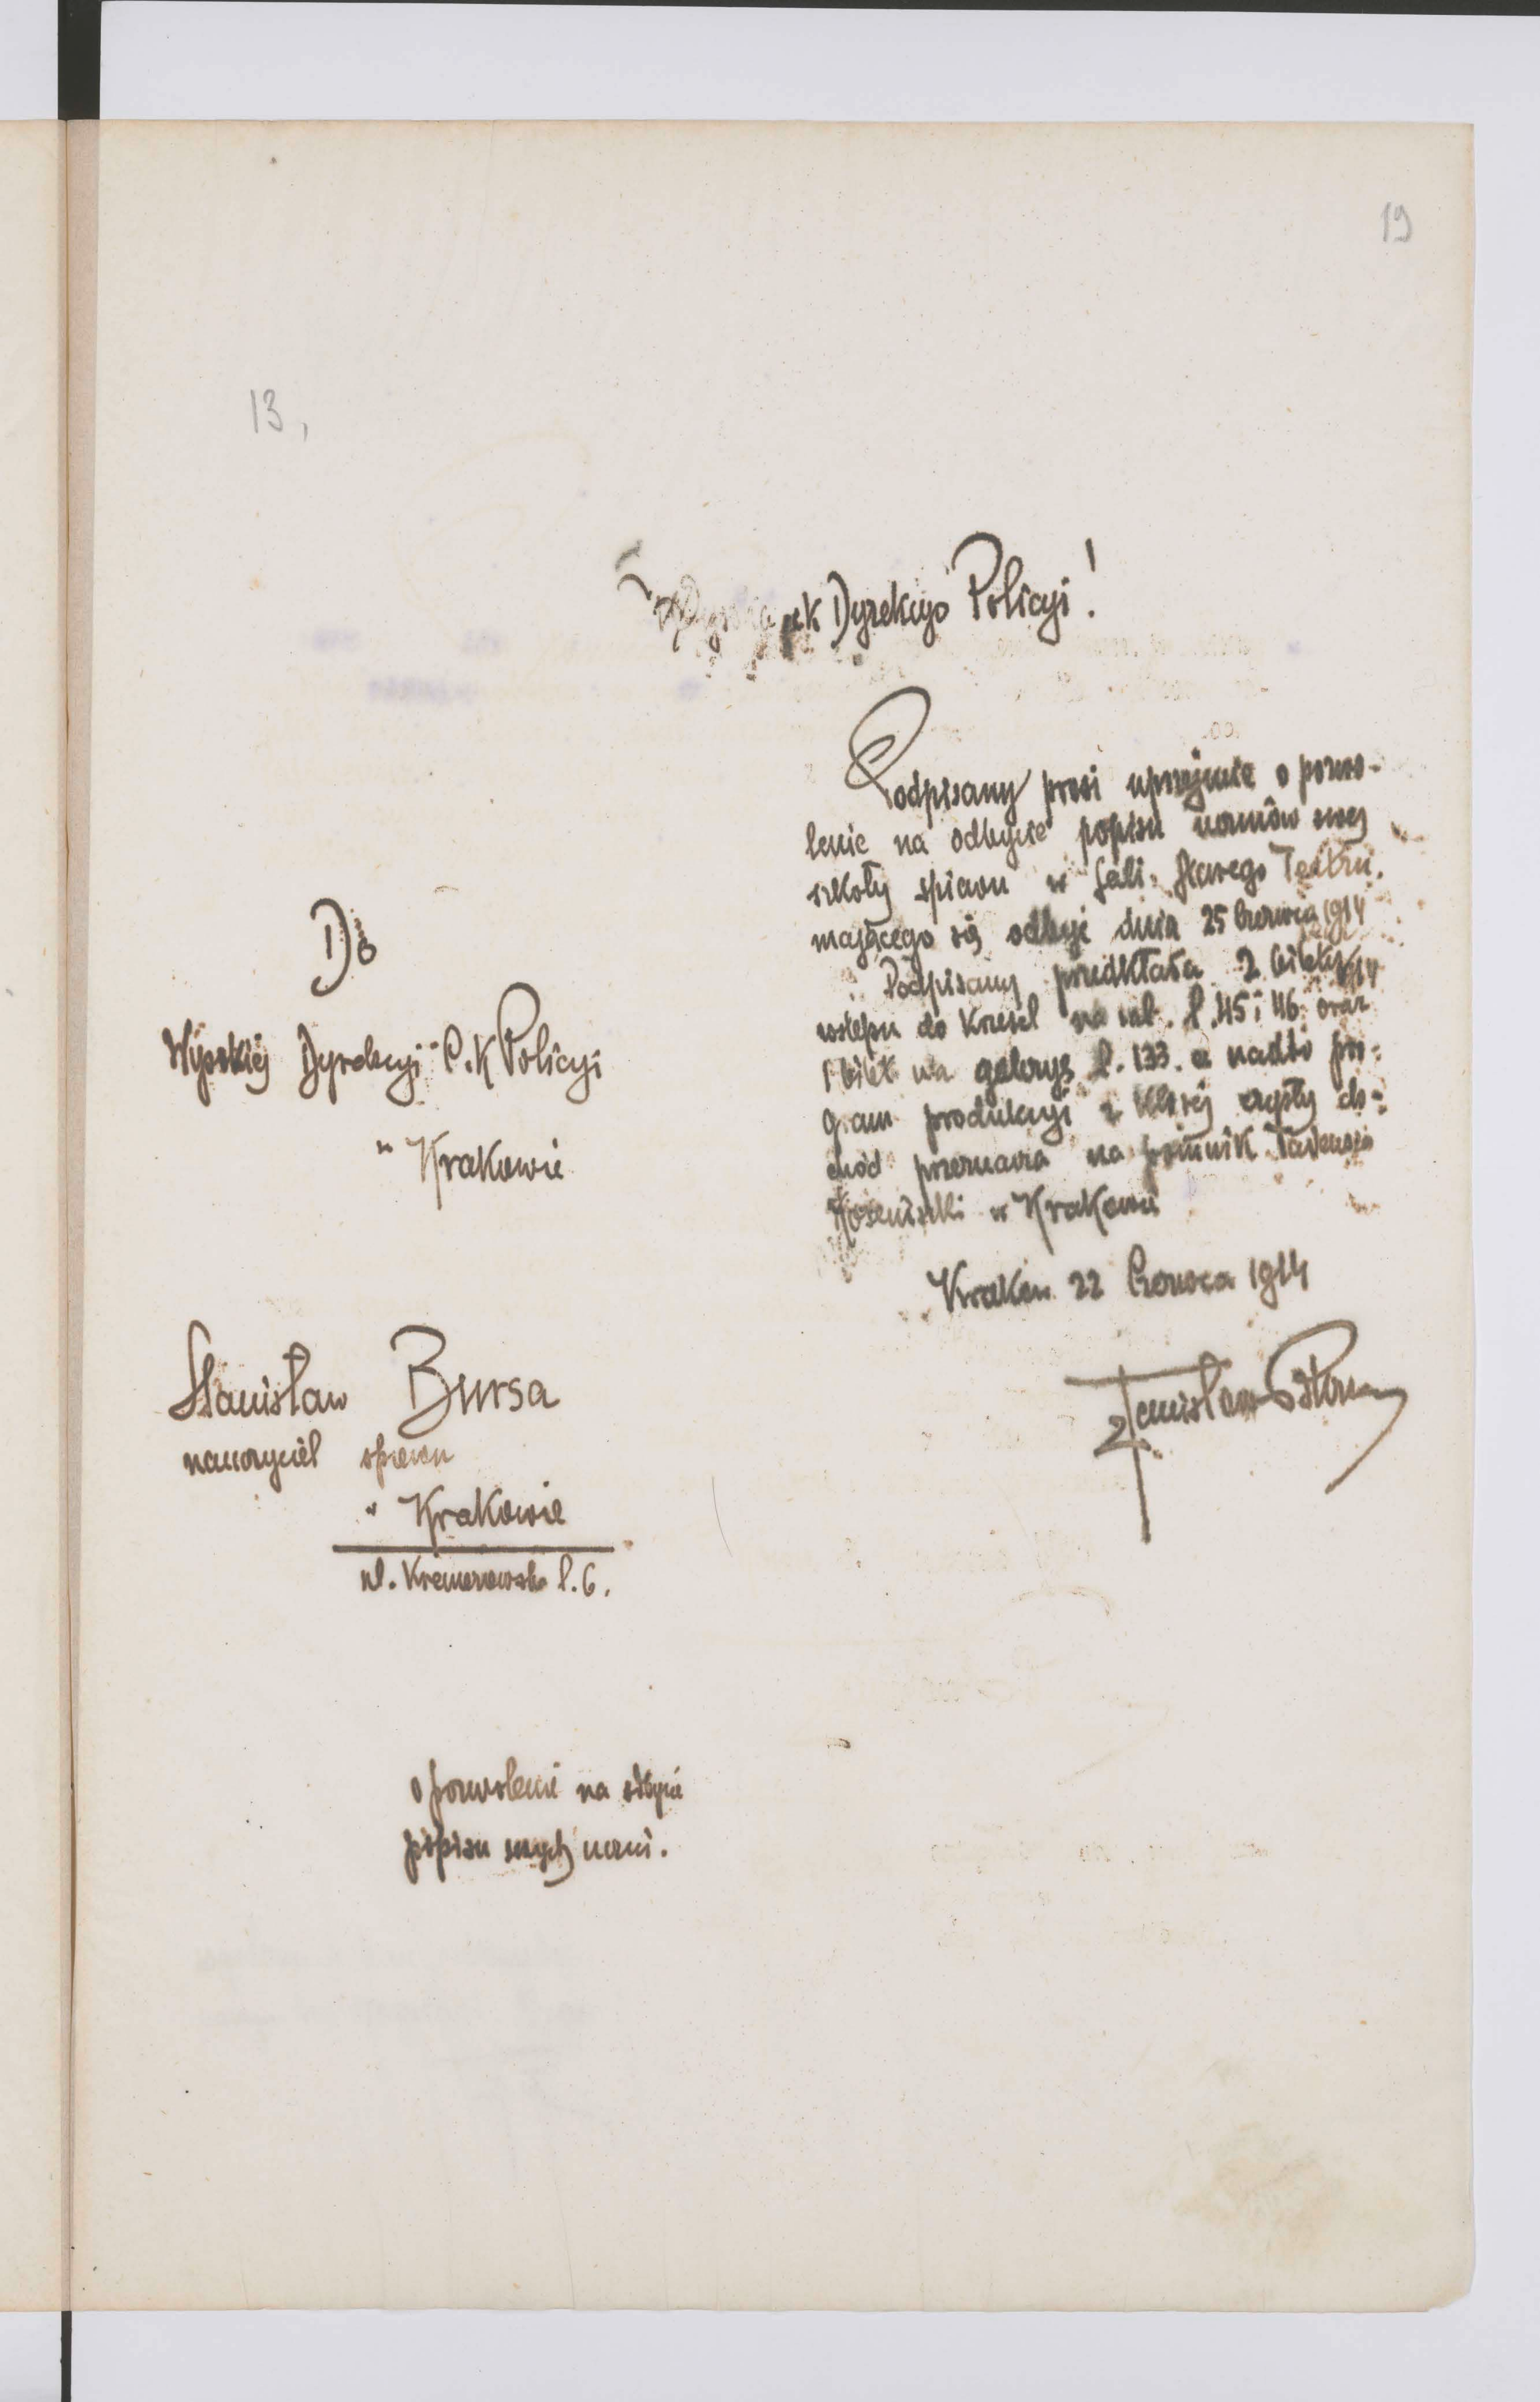 19
13,
Wysoka ck Dyrekcyo Policyi!
Podpisany prosi uprzejmie o pozwo-
lenie na odbycie popisu uczniów swej
szkoły śpiewu w sali Starego Teatru,
mającego się odbyć dnia 25 Czerwca 1914
Podpisany przedkłada 2 bilety
wstępu do krzeseł na sali l. 45 i 46. oraz
1 bilet na galeryę l. 133. a nadto pro-
gram produkcyi z której czysty do-
chód przeznacza na pomnik Tadeusza
Kościuszki w Krakowie
Kraków 22 Czerwca 1914
Stanisław Bursa
Do
Wysokiej Dyrekcyi C. K Policyi
w Krakowie
Stanisław Bursa
nauczyciel śpiewu
w Krakowie
ul. Kremerowska l. 6.
o pozwolenie na odbycie
popisu swych uczni.